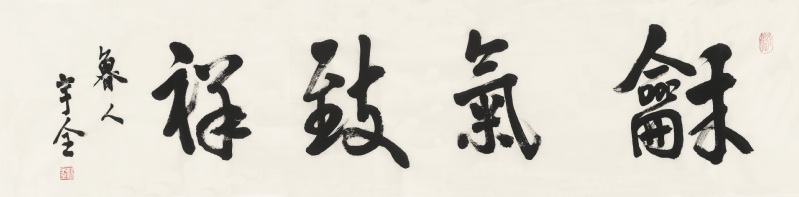 龢氣致祥
魯人
宇全